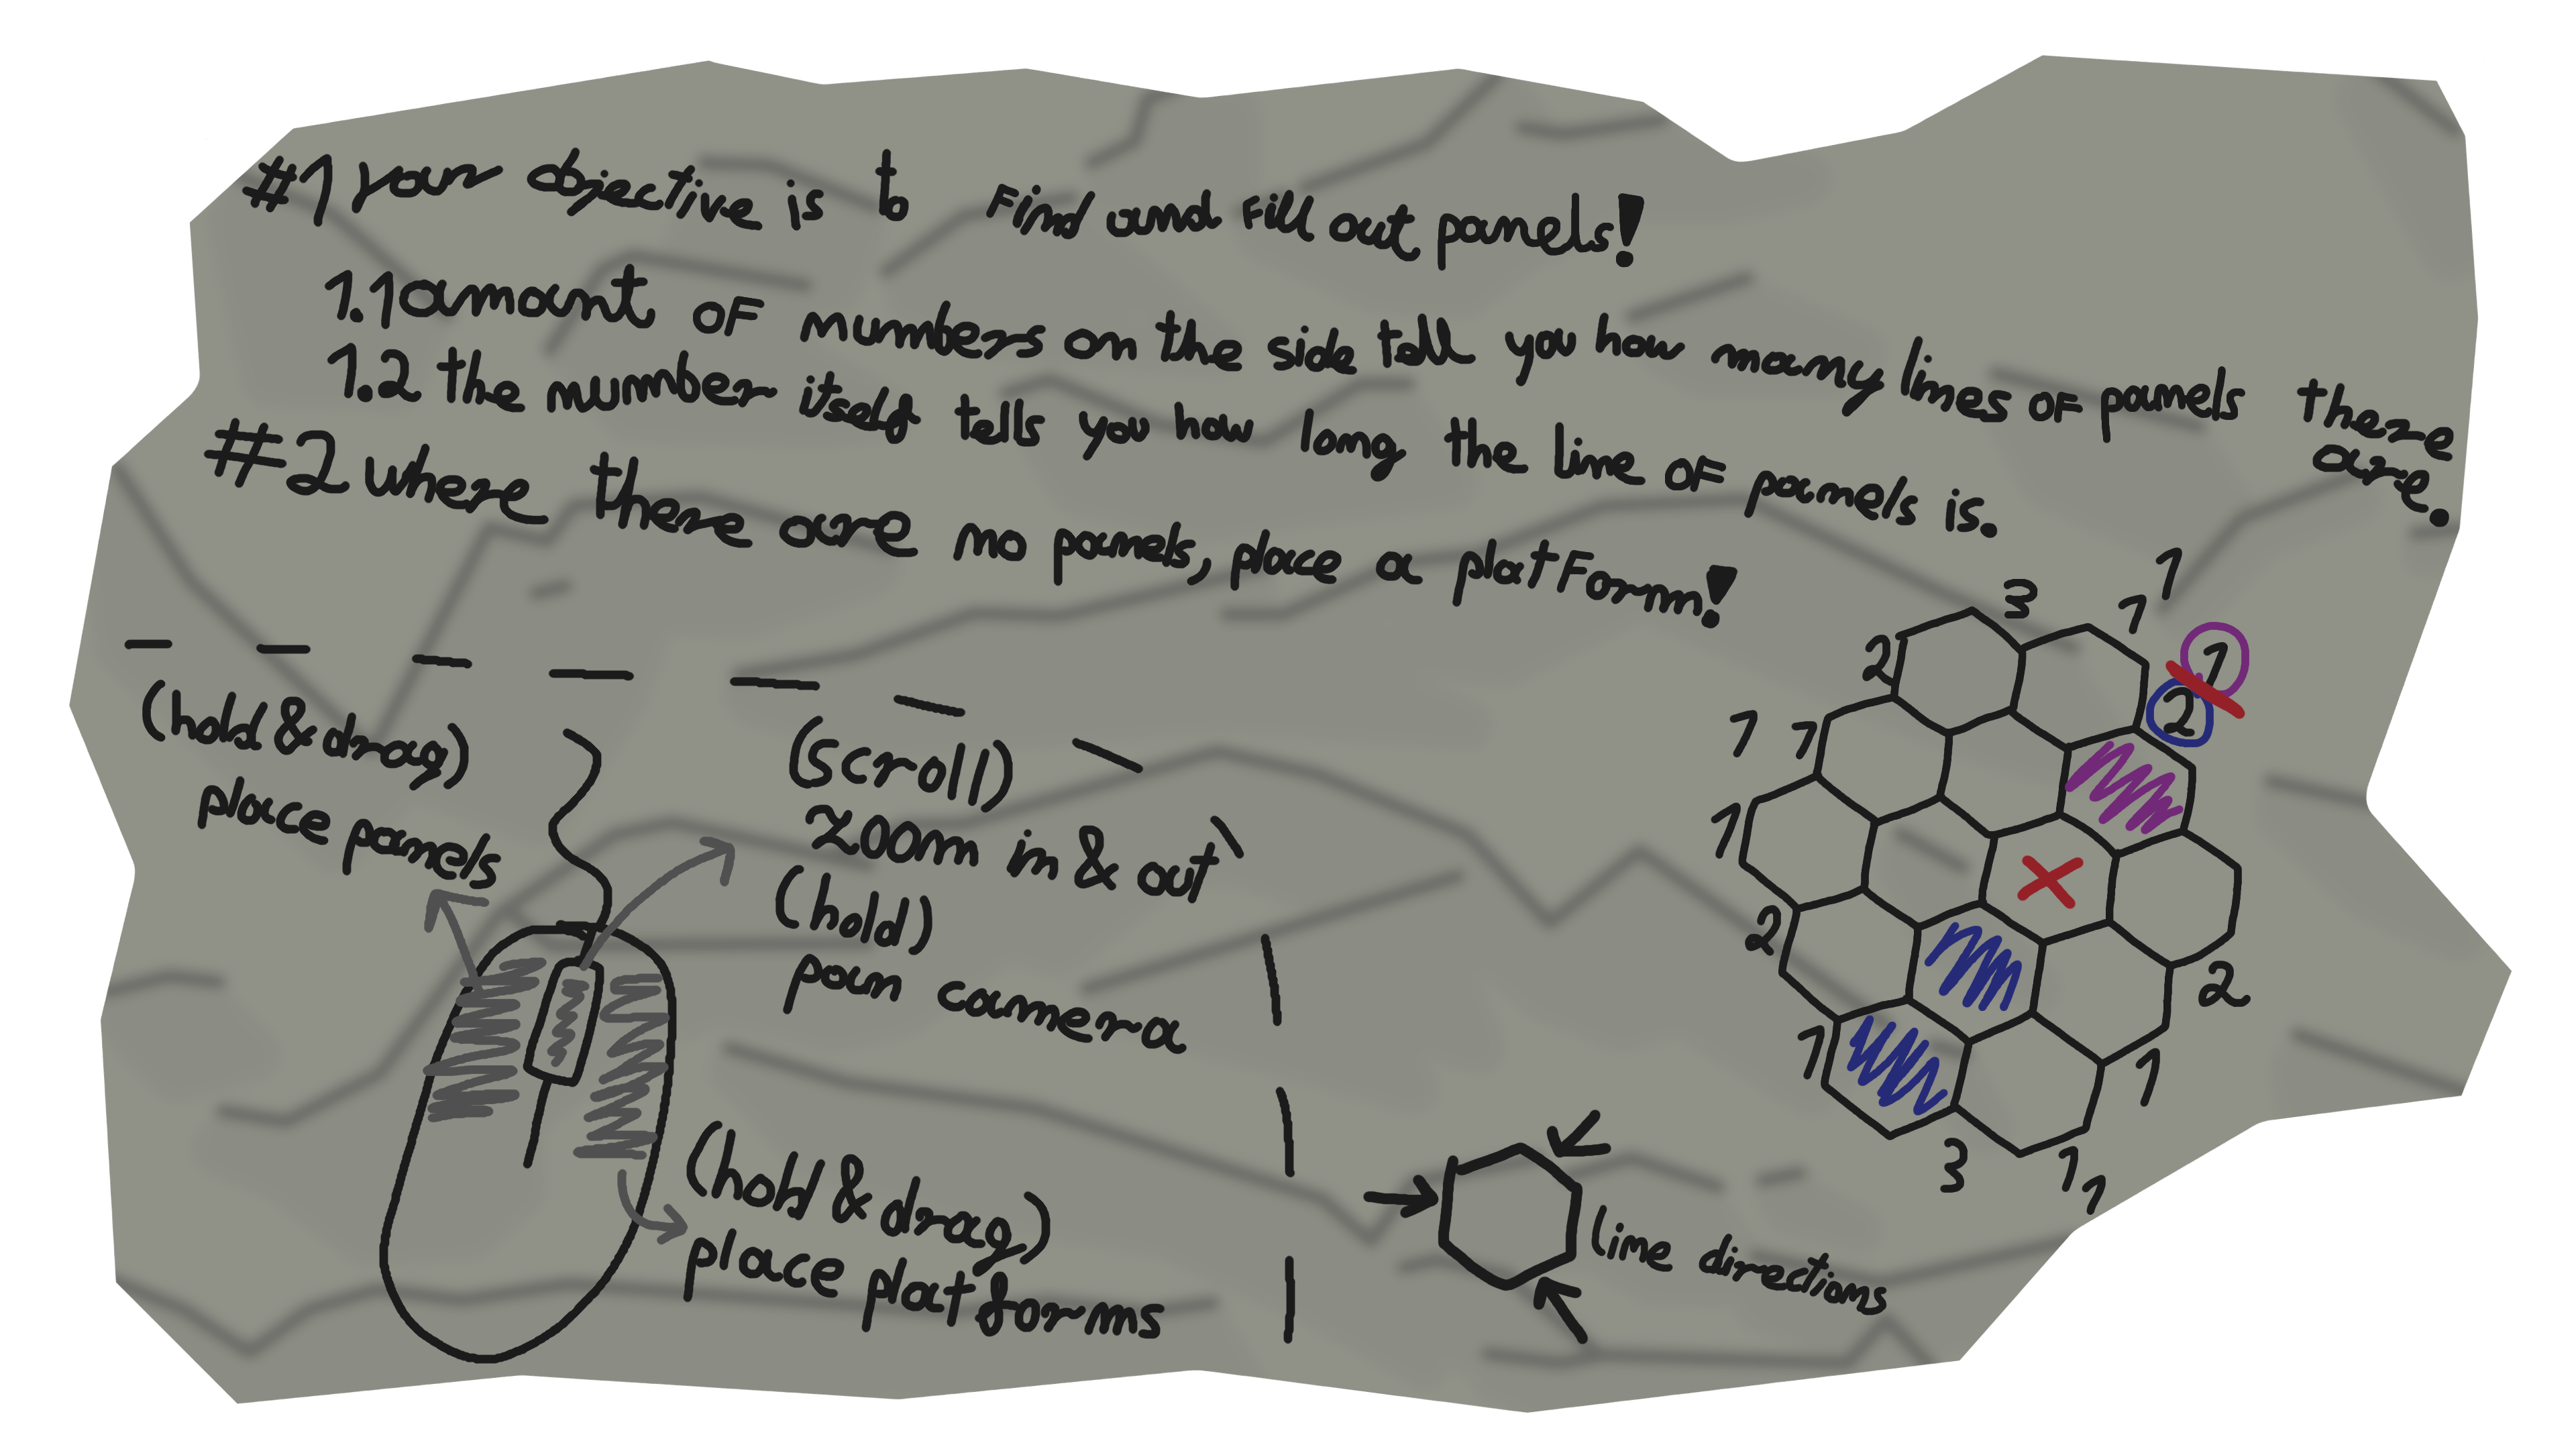 #1 your objective is to Find and Fill out panels!
1.1 amount OF numbers on the side tell you how many lines OF panels there
are.
1.2 the number itself tells you how long the line OF panels is.
#2 where there are no panels, place a platForm!
(hold & drag)
place panels
(Scroll)
zoom in & out
(hold)
pan camera
(hold & drag)
place platforms
3
1
1
2
1
2
1 1
1
2
2
1
1
3
1
1
line directions